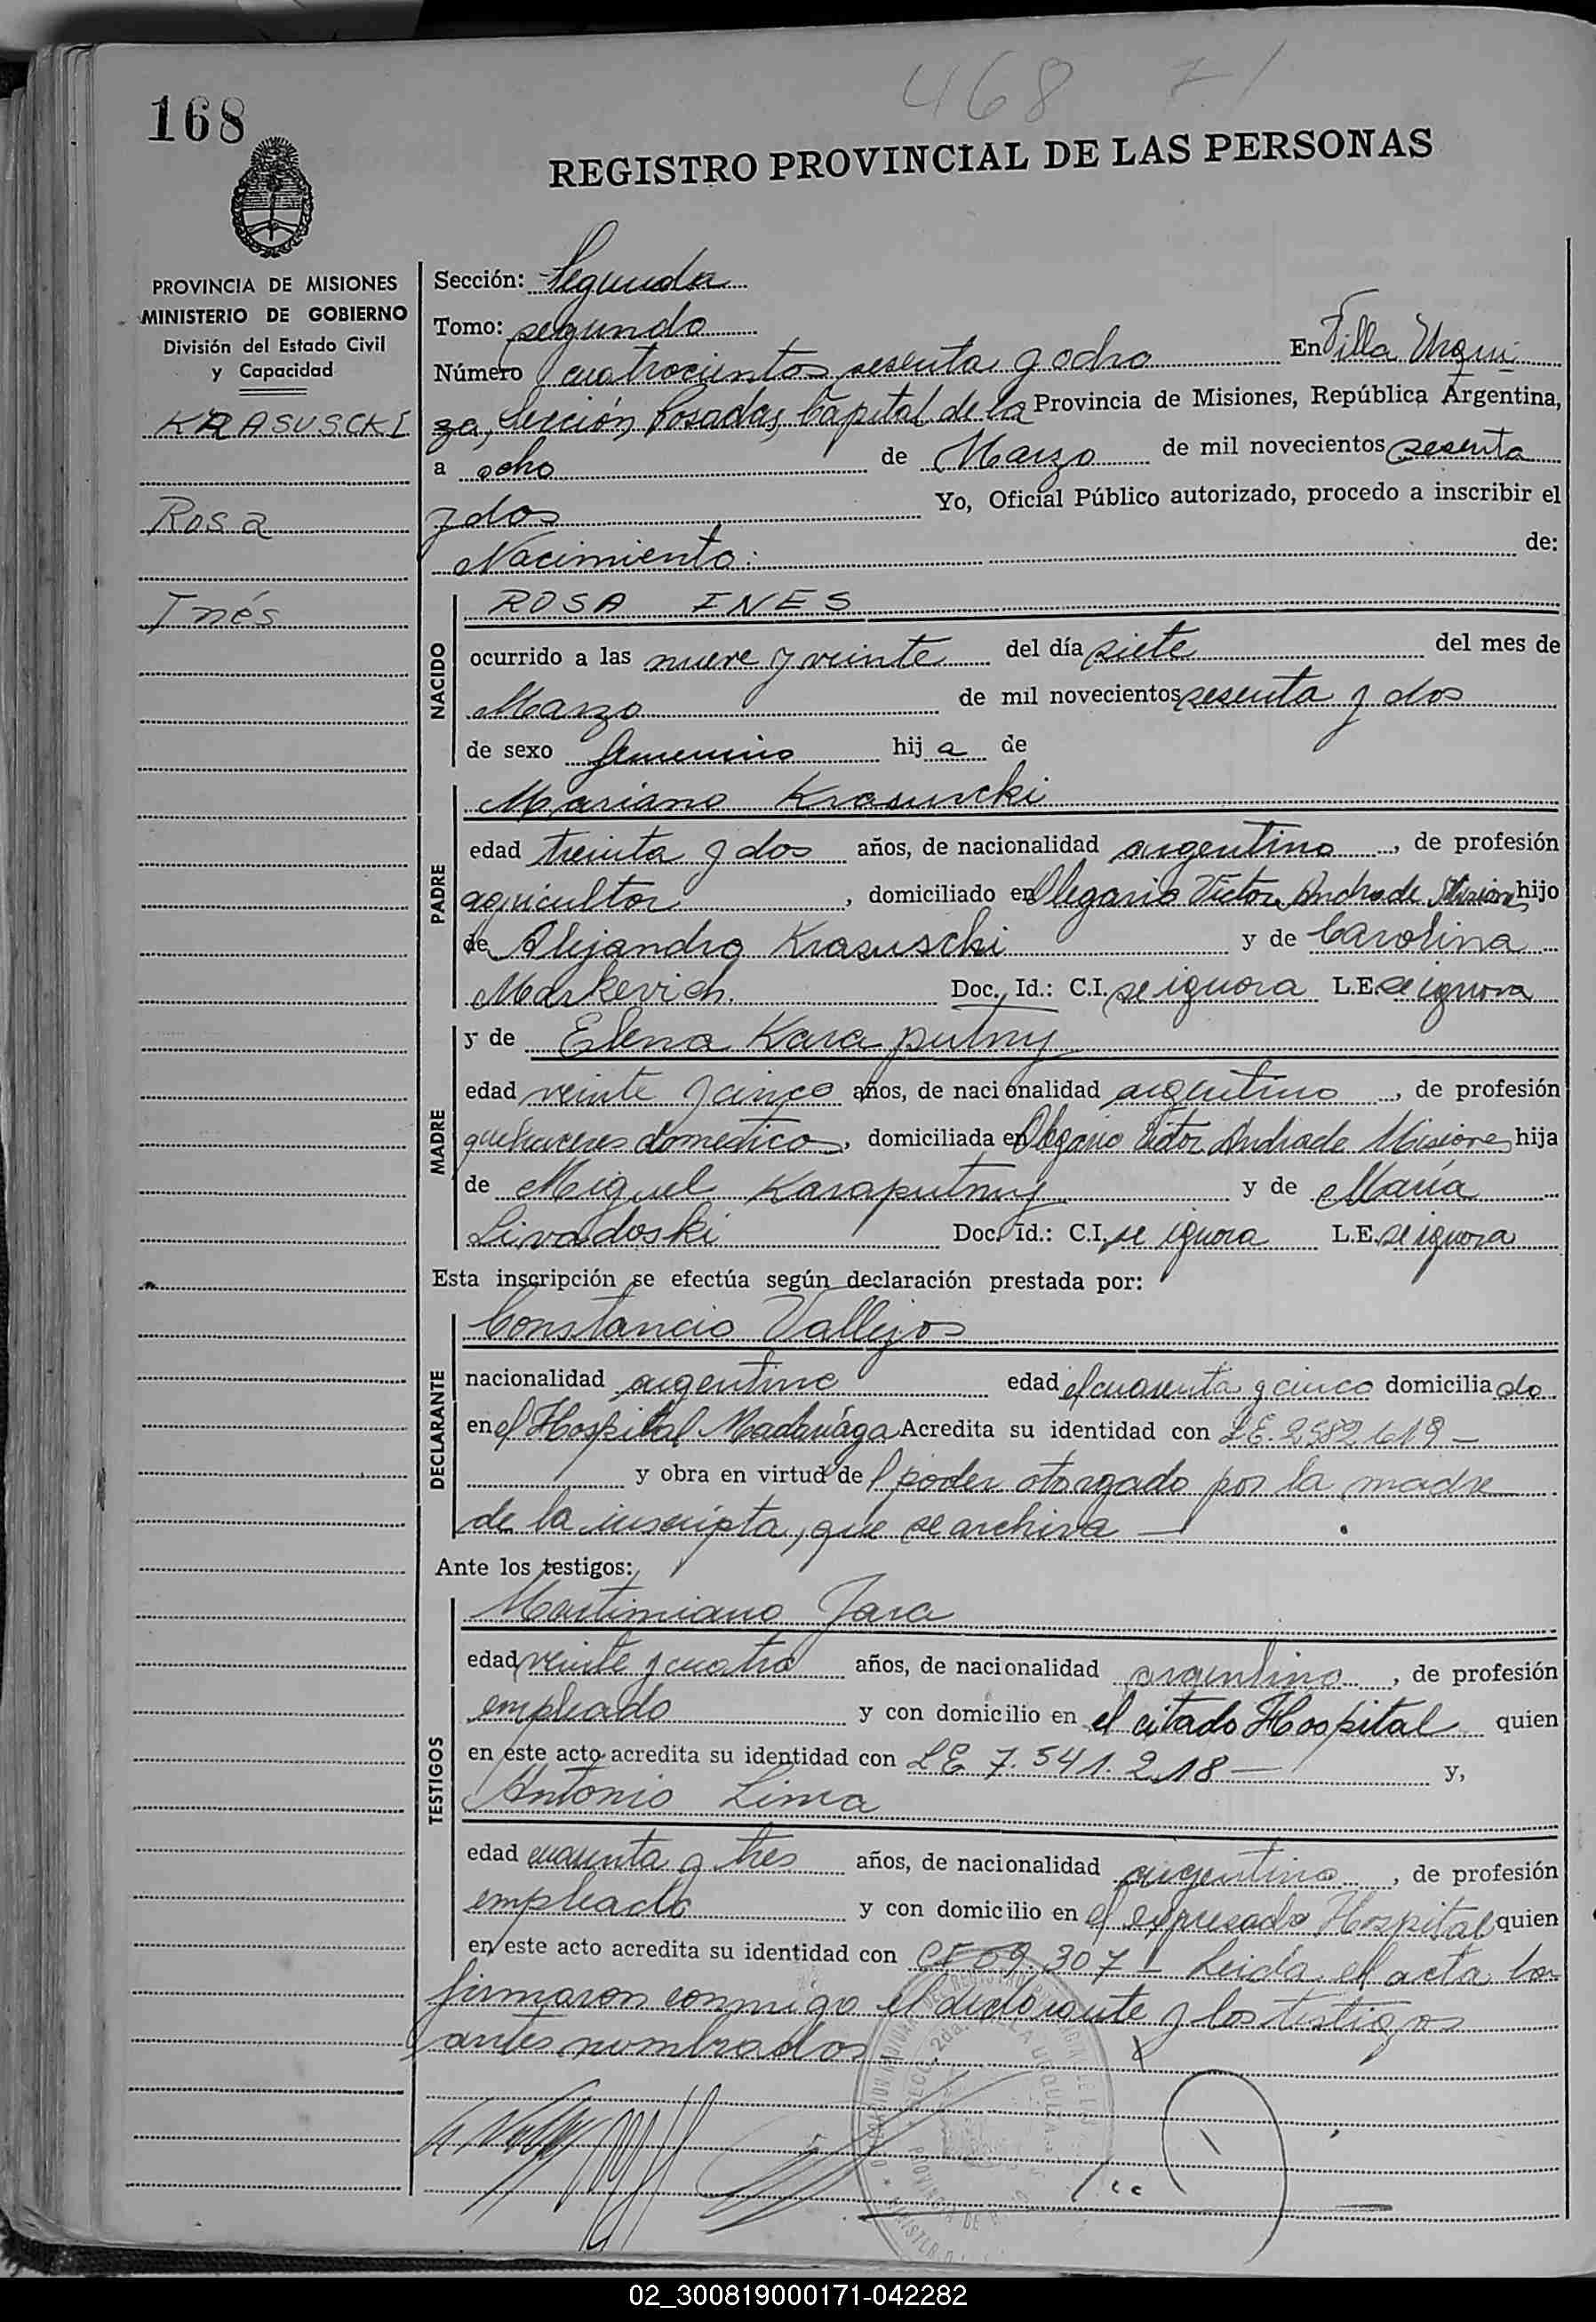 468 71
168
REGISTRO PROVINCIAL DE LAS PERSONAS
PROVINCIA DE MISIONES
MINISTERIO DE GOBIERNO
División del Estado Civil
y Capacidad
KRASUSCKI
Rosa
Inés
Sección: Segunda
Tomo: segundo
Número cuatrocientos sesenta y ocho En Villa Urqui
za, Sección Posadas, Capital de la Provincia de Misiones, República Argentina,
a ocho de Marzo de mil novecientos sesenta
y dos Yo, Oficial Público autorizado, procedo a inscribir el
Nacimiento: de:
NACIDO
ROSA INES
ocurrido a las nueve y veinte del día siete del mes de
Marzo de mil novecientos sesenta y dos
de sexo femenino hija de
PADRE
Mariano Krasuscki
edad treinta y dos años, de nacionalidad argentino, de profesión
agricultor, domiciliado en Olegario Victor Andrade Misiones hijo
de Alejandro Krasuscki y de Carolina
Markevich. Doc. Id.: C.I. se ignora L.E. se ignora
MADRE
y de Elena Karaputny
edad veinte y cinco años, de nacionalidad argentino, de profesión
quehaceres domestico, domiciliada en Olegario Victor Andrade Misiones hija
de Miguel Karaputny y de María
Livadoski Doc. Id.: C.I. se ignora L.E. se ignora
Esta inscripción se efectúa según declaración prestada por:
DECLARANTE
Constancio Vallejos
nacionalidad argentino edad cuarenta y cinco domiciliado
en el Hospital Madariaga Acredita su identidad con LE. 2582619 —
y obra en virtud del poder otorgado por la madre
de la inscripta, que se archiva —
Ante los testigos:
TESTIGOS
Martimiano Jara
edad veinte y cuatro años, de nacionalidad argentino, de profesión
empleado y con domicilio en el citado Hospital quien
en este acto acredita su identidad con LE 7.541.218 — y,
Antonio Lima
edad cuarenta y tres años, de nacionalidad argentino, de profesión
empleado y con domicilio en el expresado Hospital quien
en este acto acredita su identidad con 69.307 — Leida el acta la
firmaron conmigo el declarante y los testigos
antes nombrados
02_300819000171-042282